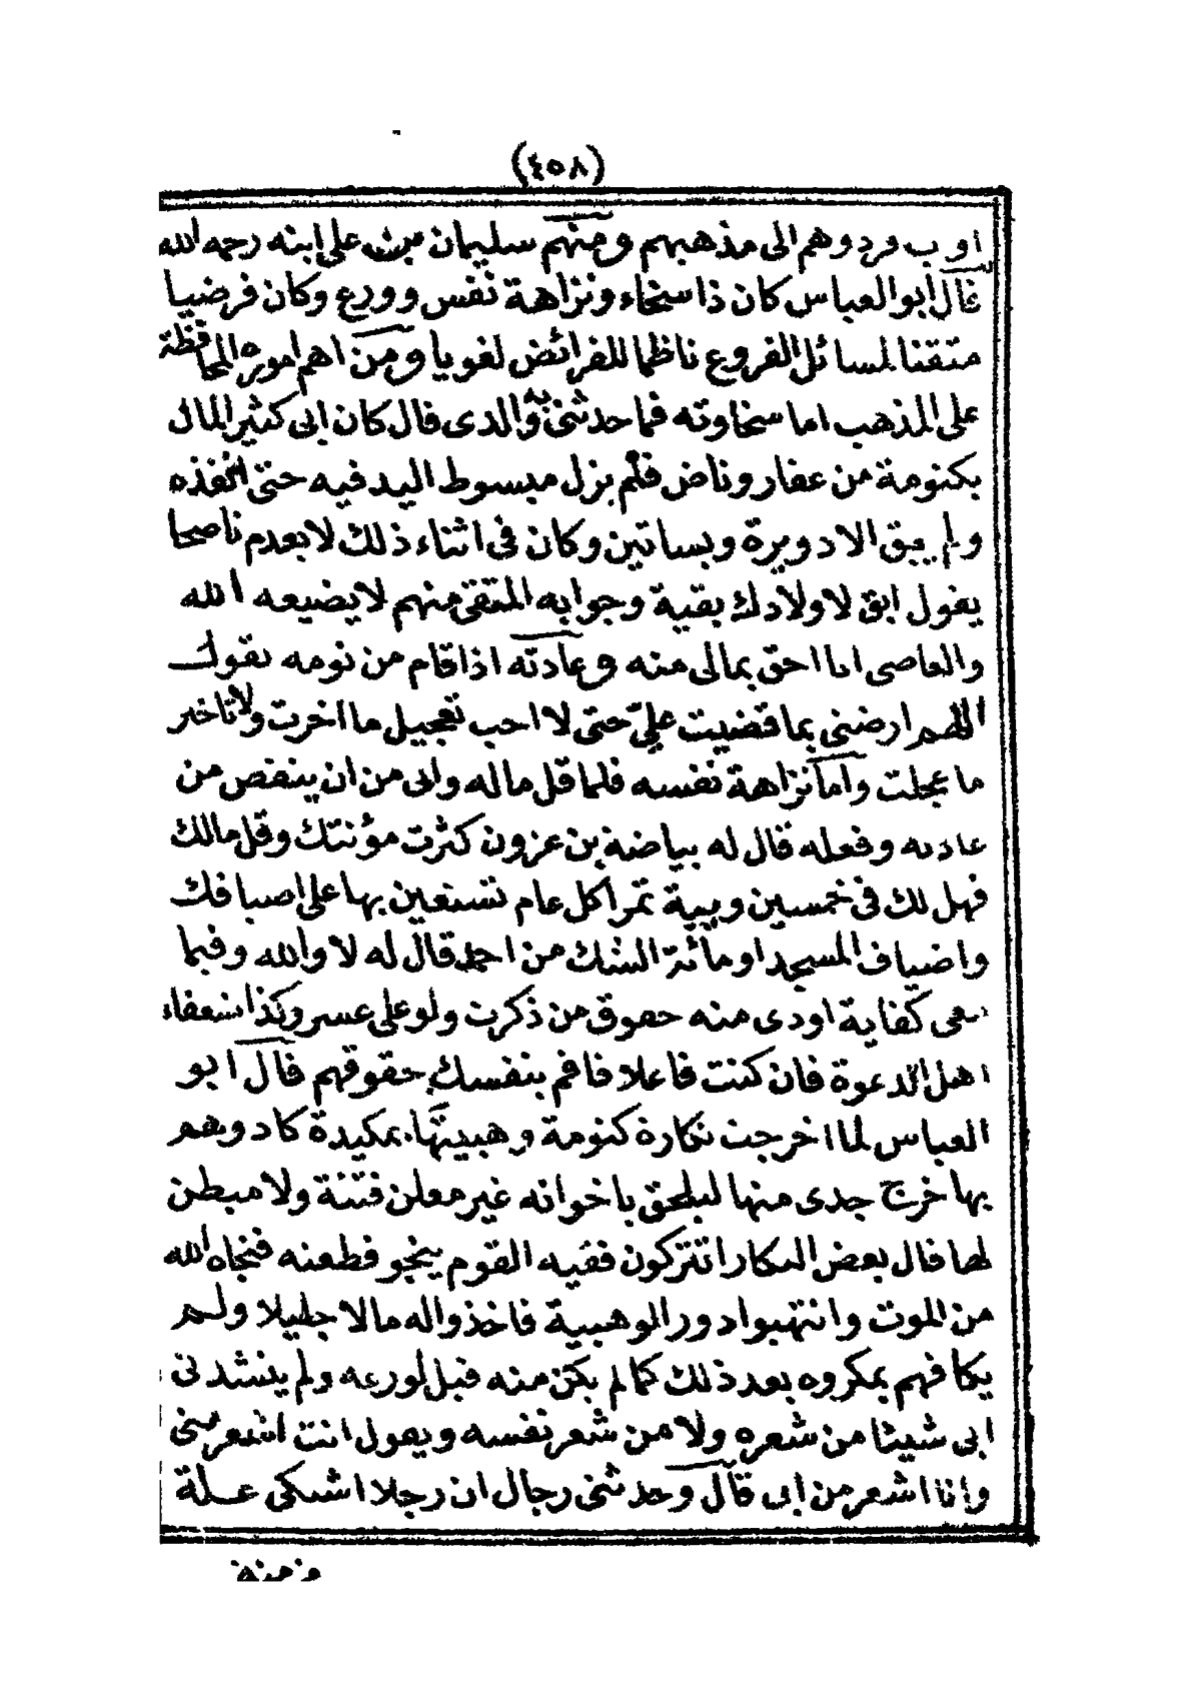 (٤٥٨)
اوب وردوهم الى مذهبهم ومنهم سليمان بن على ابنه رحمه الله
قال أبو العباس كان ذا سخاء ونزاهة نفس وورع وكان فرضيا
متقنا لمسائل الفروع ناظما للفرائض لغويا ومن اهم اموره المحافظة
على المذهب اما سخاوته فما حدثنى به والدى قال كان ابى كثير المال
بكنومة من عقار وناض فلم يزل مبسوط اليد فيه حتى انفذه
ولم يبق الا دويرة وبساتين وكان فى اثناء ذلك لا يعدم ناصحا
يقول ابق لاولادك بقية وجوابه المتقى منهم لا يضيعه الله
والعاصى انا احق بمالى منه وعادته اذا قام من نومه يقول
اللهم ارضنى بما قضيت علىّ حتى لا احب تعجيل ما اخرت ولا تاخير
ما عجلت وأما نزاهة نفسه فلما قل ماله وابى من ان ينقص من
عادته وفعله قال له بياضة بن عزون كثرت مؤنتك وقل مالك
فهل لك فى خمسين ويبة تمرا كل عام تستعين بها على اصيافك
واضياف المسجد او مائة الشك من احمد قال له لا والله وفيما
معى كفاية اودى منه حقوق من ذكرت ولو على عسر وكذا ضعفاء
اهل الدعوة فان كنت فاعلا فاقم بنفسك بحقوقهم قال ابو
العباس لما اخرجت نكارة كنومة وهبيتها بمكيدة كادوهم
بها خرج جدى منها ليلحق باخوانه غير معلن فتنة ولا مبطن
لها فقال بعض النكار اتتركون فقيه القوم ينجو فطعنه فنجاه الله
من الموت وانتهبوا دور الوهبية فاخذوا له مالا جليلا ولم
يكافهم بمكروه بعد ذلك كما لم يكن منه قبل لورعه ولم ينشدنى
ابى شيئا من شعره ولا من شعر نفسه ويقول انت اشعر منى
وانا اشعر من ابى قال وحدثنى رجال ان رجلا اشتكى عــلة
مزمنة